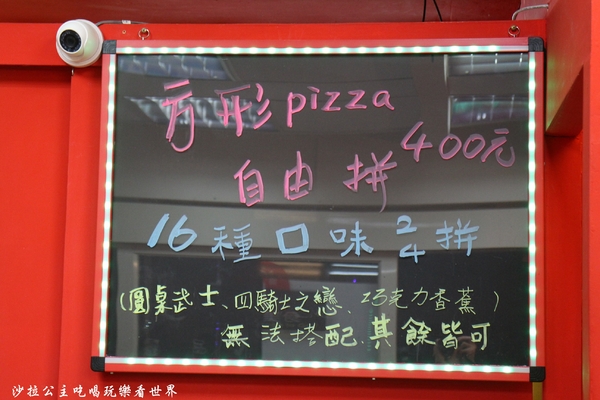 方形pizza
自由拼400元
16種口味2/4拼
(圓桌武士、四騎士之戀、巧克力香蕉)
無法搭配.其餘皆可
沙拉公主吃喝玩樂看世界